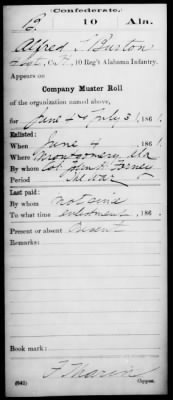 Confederate.
10 Ala.
Alfred T Burton
Co. H, 10 Reg't Alabama Infantry.
Company Muster Roll
of the organization named above,
for June 4 to July 31, 1861.
Enlisted:
When June 4, 1861.
Where Montgomery Ala
By whom Col. John H. Forney
Period The War
Last paid:
By whom not since
To what time enlistment, 186 .
Present or absent
Remarks:
Book mark:
(642) Copyist.